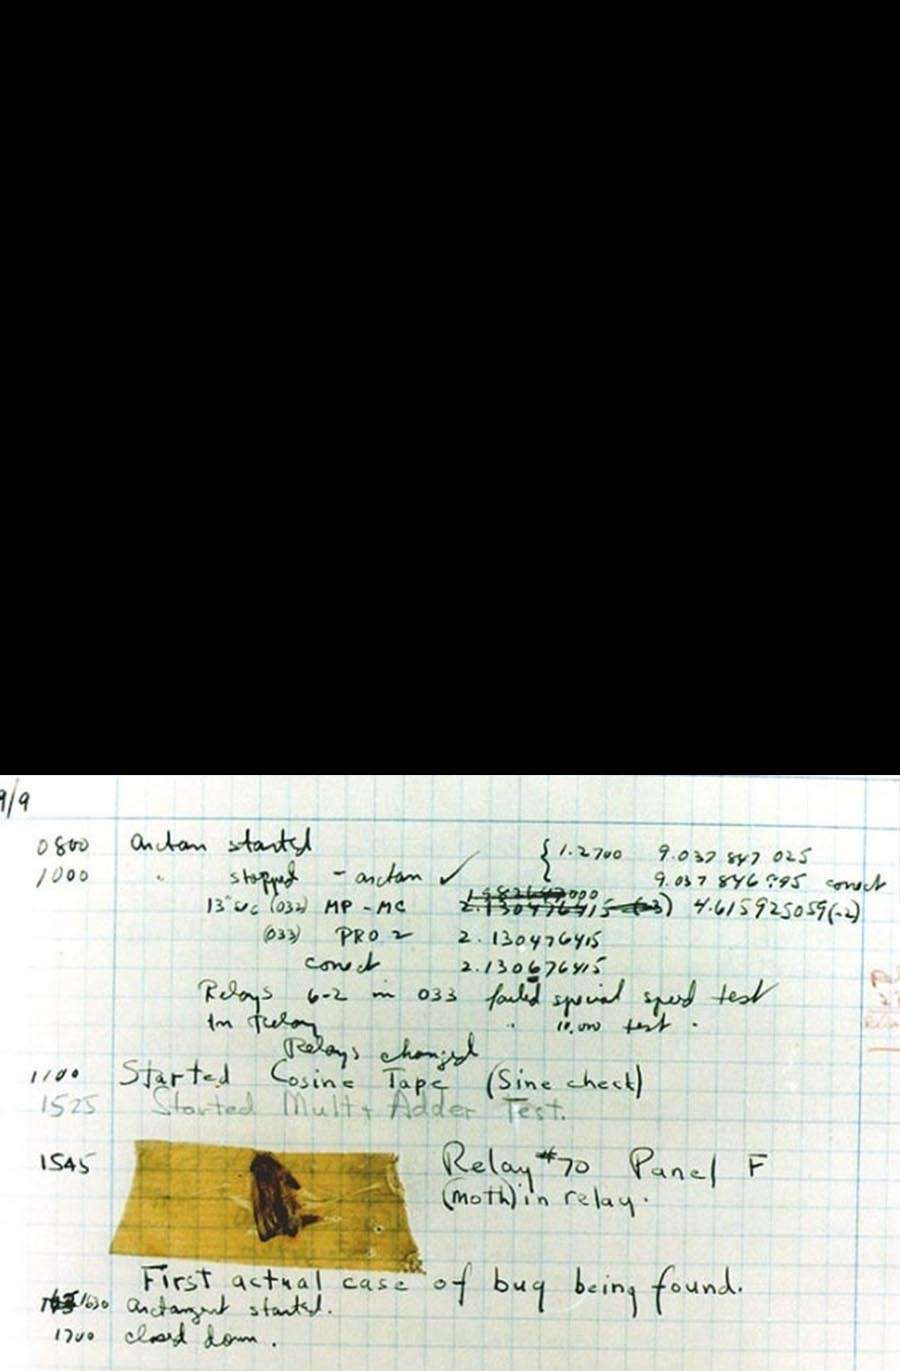 9/9
0800 arctan started { 1.2700 9.037 847 025
1000 " stopped - arctan ✓ { 9.037 846 995 correct
13" uc (032) MP - MC 1.982647000 2.130476415 (-3) 4.615925059(-2)
(033) PRO 2 2.130476415
correct 2.130676415
Relays 6-2 in 033 failed special speed test
In Relay " 10,000 test .
Relays changed
1100 Started Cosine Tape (Sine check)
1525 Started Mult+ Adder Test.
1545 Relay #70 Panel F
(moth) in relay.
First actual case of bug being found.
1630 arctangent started.
1700 closed down .